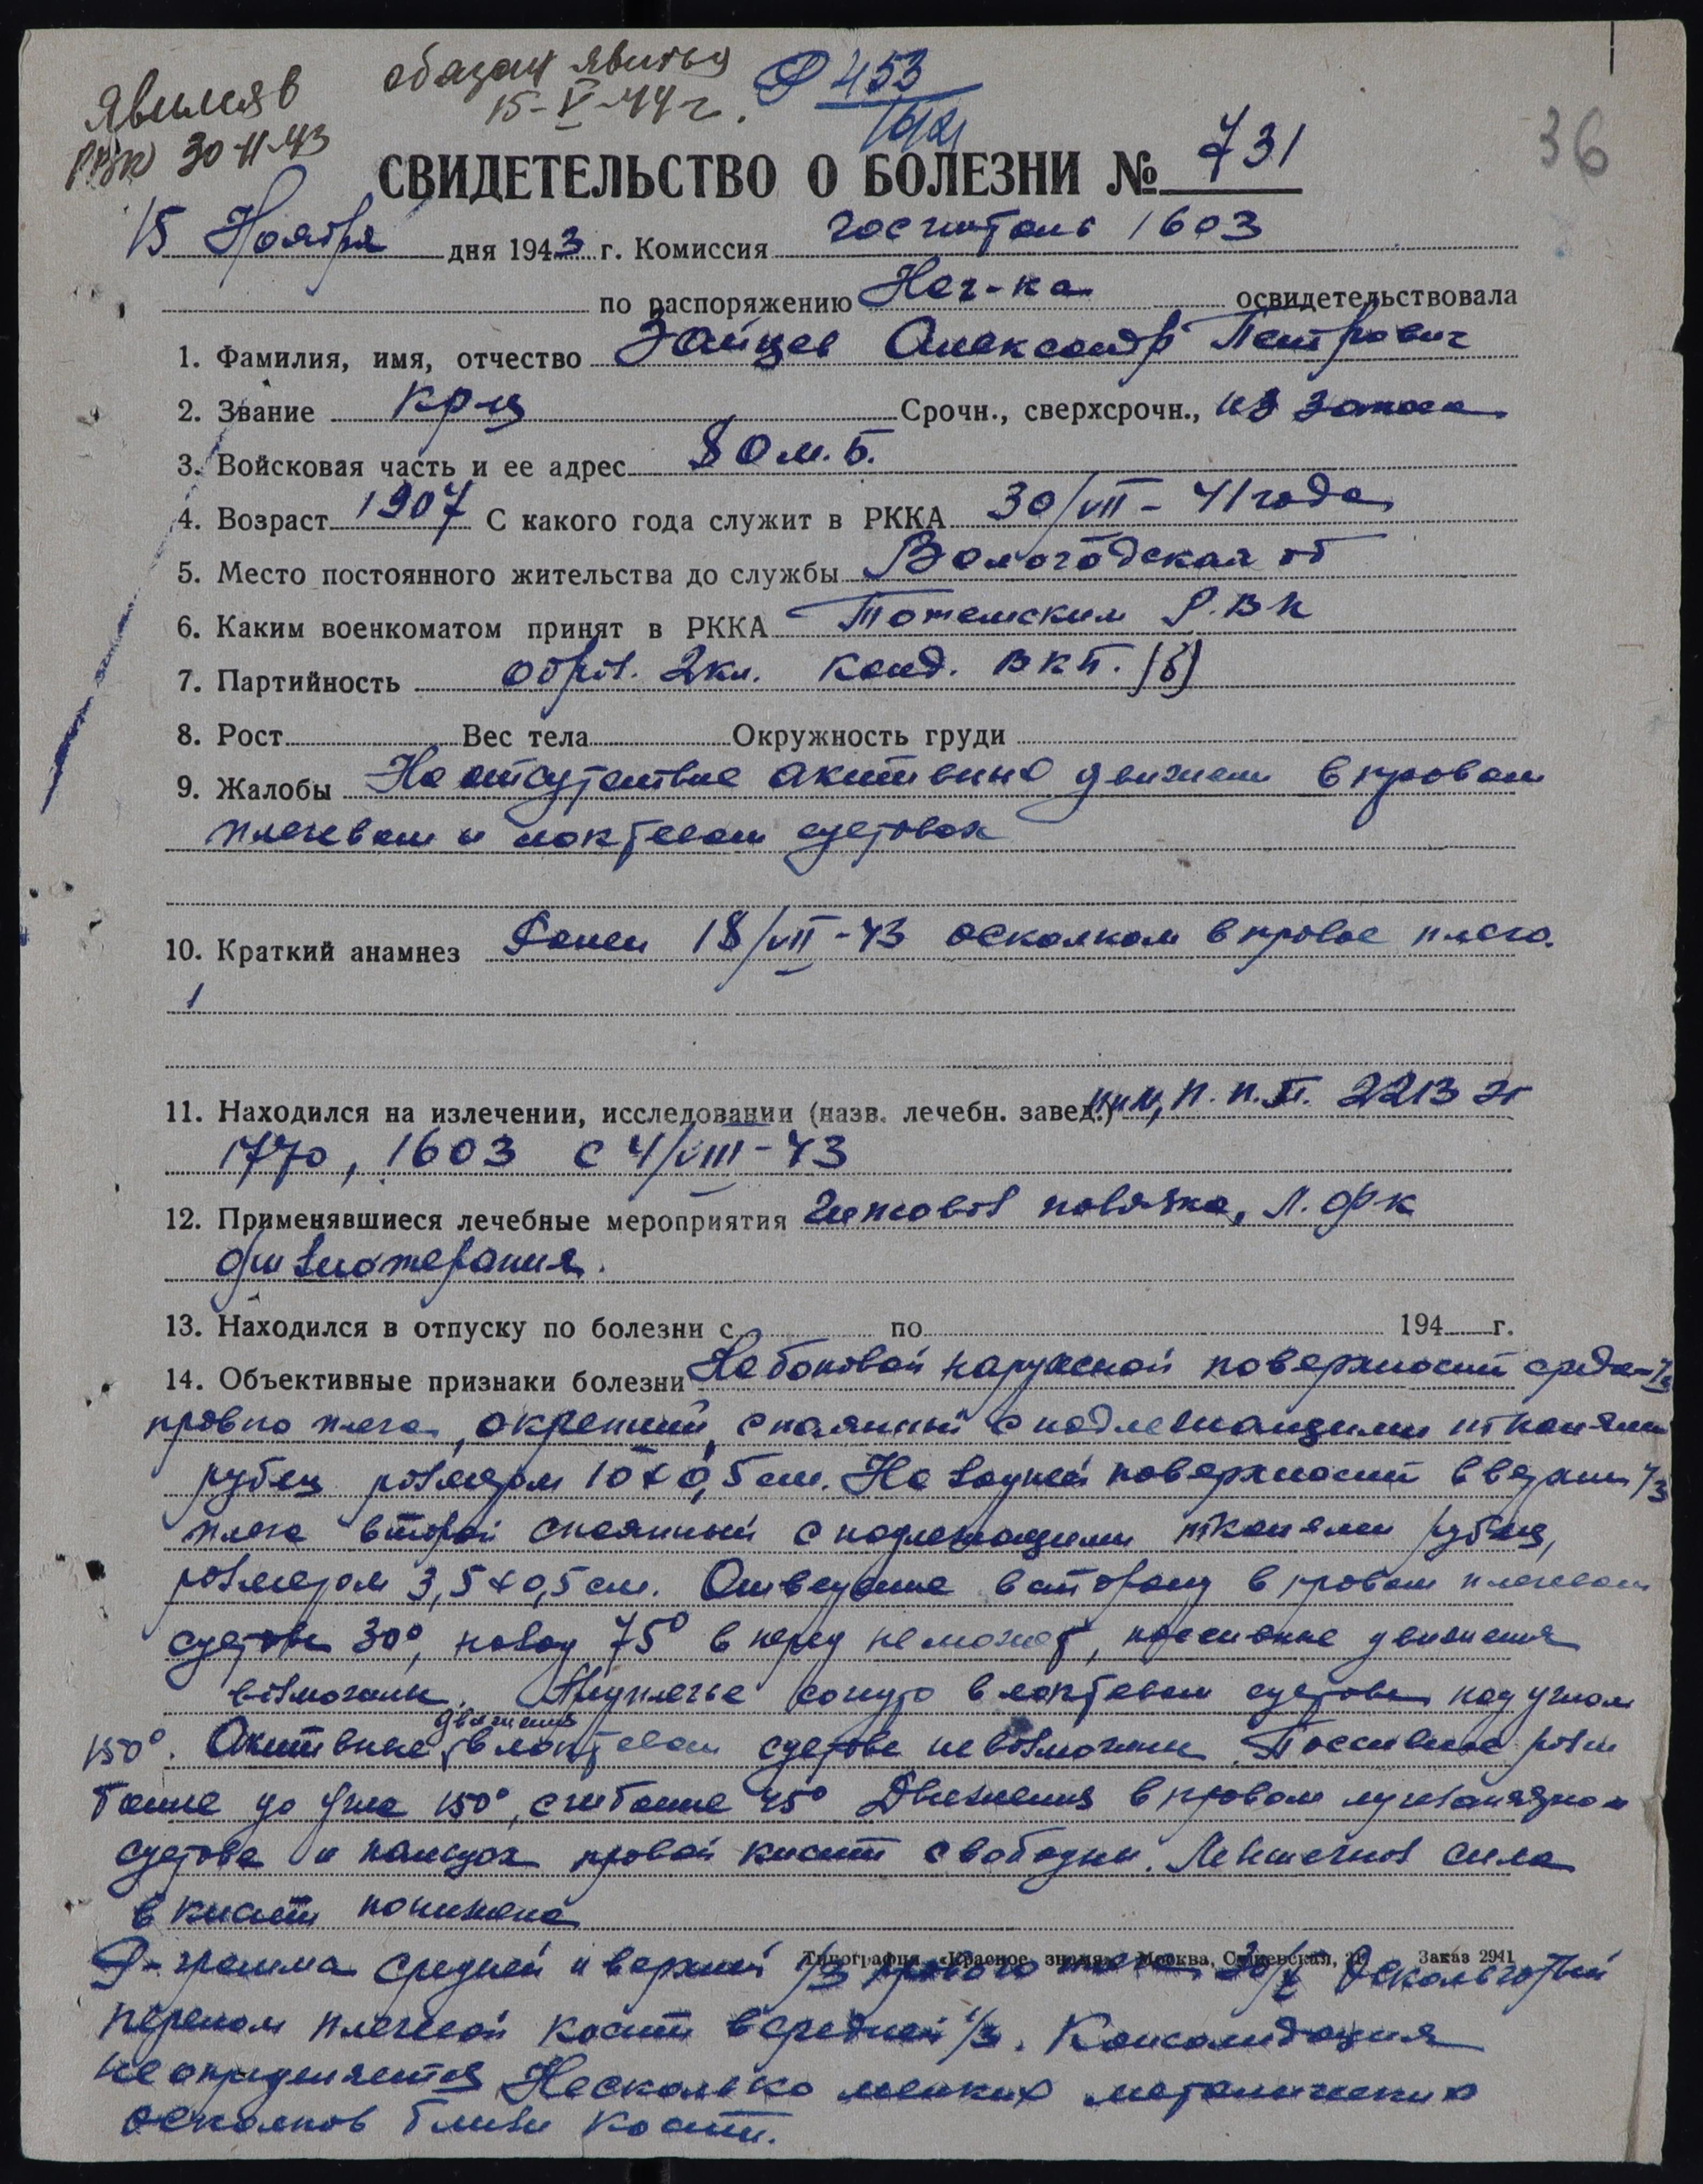 явился в
РВК 30-11-43
обязан явится
15-V-44 г.
Р 453
36
СВИДЕТЕЛЬСТВО О БОЛЕЗНИ № 731
15 Ноября дня 1943 г. Комиссия госпиталь 1603
по распоряжению Нач-ка освидетельствовала
1. Фамилия, имя, отчество Зайцев Александр Петрович
2. Звание кр-ц Срочн., сверхсрочн., из запаса
3. Войсковая часть и ее адрес 8 О м. б.
4. Возраст 1907 С какого года служит в РККА 30/VII - 41 года
5. Место постоянного жительства до службы Вологодская об
6. Каким военкоматом принят в РККА Тотемским Р.ВК
7. Партийность обрзв. 2 кл. канд. ВКП. (б)
8. Рост Вес тела Окружность груди
9. Жалобы На отсутствие активно движени в правом
плечевом и локтевом суставах
10. Краткий анамнез Ранен 18/VII-43 осколком в правое плечо.
11. Находился на излечении, исследовании (назв. лечебн. завед.) п.п.г. 2213 эг
1770, 1603 с 4/VIII-43
12. Применявшиеся лечебные мероприятия Гипсовая повязка, Л.ФК
физиотерапия.
13. Находился в отпуску по болезни с по 194 г.
14. Объективные признаки болезни На боковой наружной поверхности средн 1/3
правго плеча, окрепший, спаянный с подлежащими тканями
рубец размером 10х0,5 см. На задней поверхности в верхн 1/3
плеча второй спаянный с подлежащими тканями рубец,
размером 3,5х0,5 см. Отведение в сторону в правом плечевом
суставе 30°, назад 75° в перед не может, пассивные движения
возможны. Предплечье согнуто в локтевом суставе под углом
150°. Активные движения в локтевом суставе невозможны. Пассивное разги
бание до угла 150°, сгибание 45° Движения в правом лучезапястном
суставе и пальцах правой кисти свободны. Мышечная сила
в кисти понижена
Типография «Красное знамя» Москва, Сущевская, 21 Заказ 2941
Р-грамма средней и верхней 1/3 правого плеча 20/X Оскольчатый
перелом плечевой кости в средней 1/3. Консолидация
не определяется Несколько мелких металических
осколков близи кости.